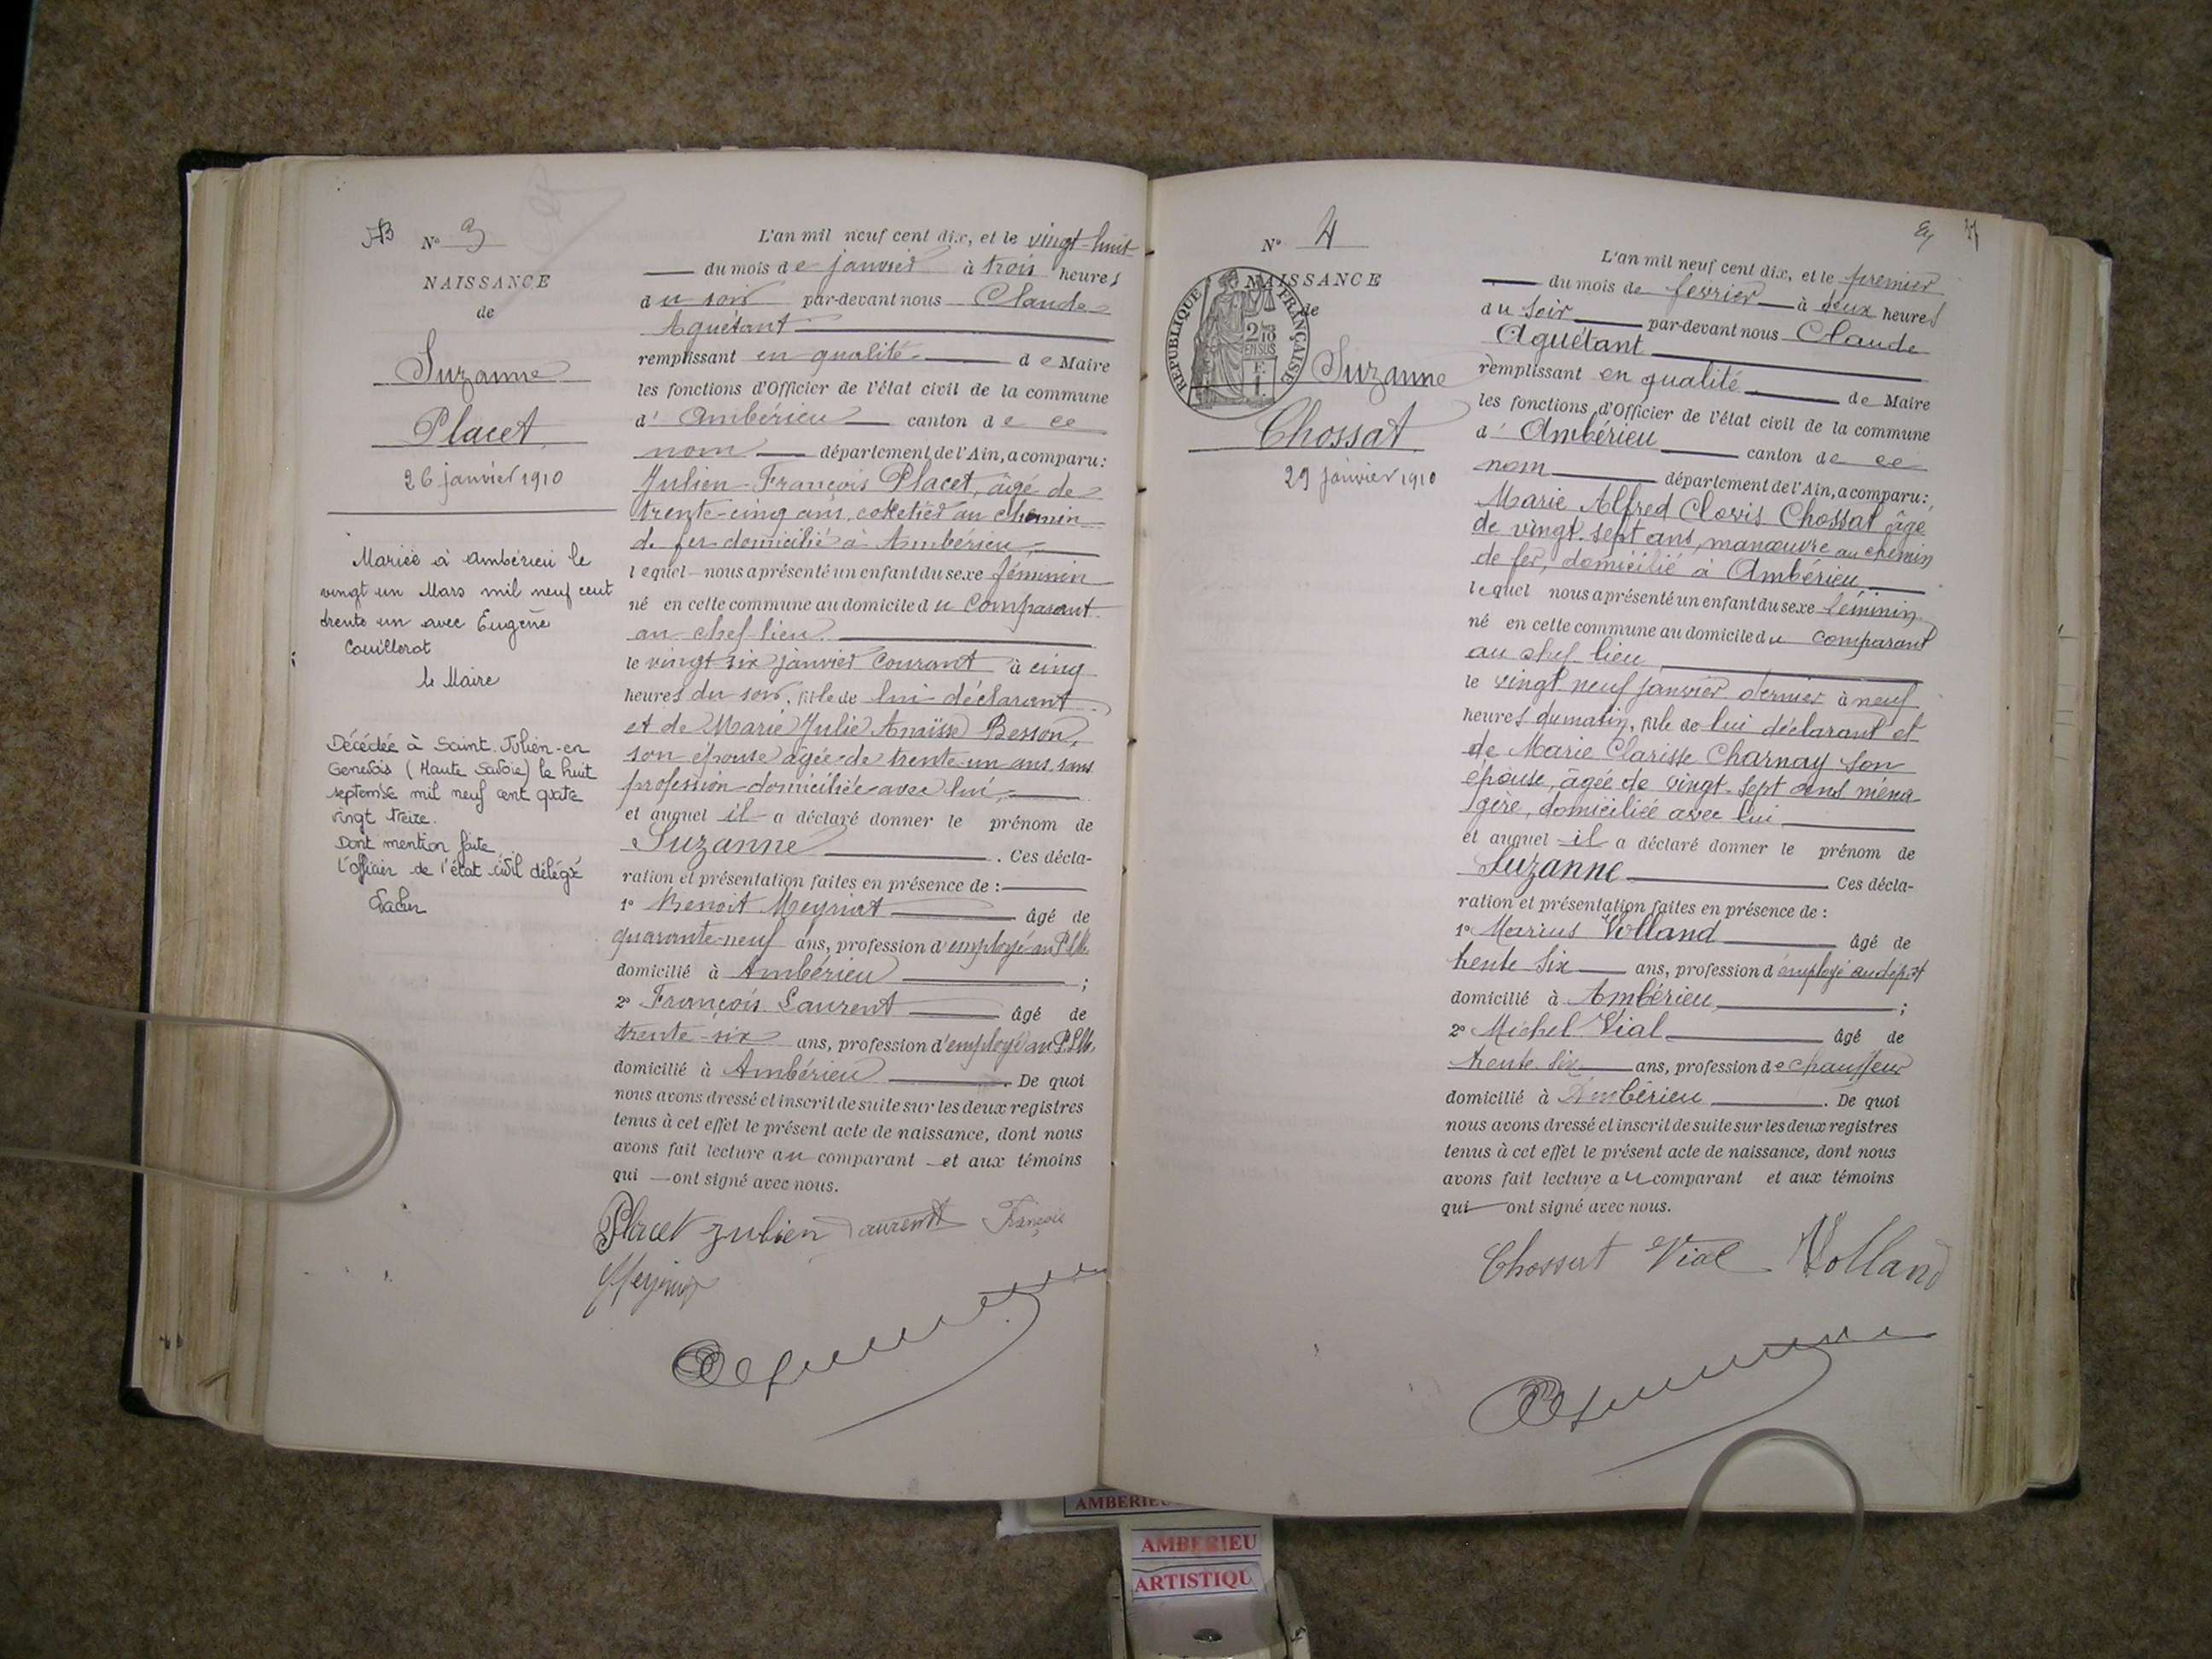 AB
N° 3
NAISSANCE
de
Suzanne
Placet
26 janvier 1910
Mariée à Ambérieu le
vingt un Mars mil neuf cent
trente un avec Eugène
le Maire
Décédée à Saint-Julien-en
Genevois (Haute Savoie) le huit
septembre mil neuf cent quatre
vingt treize.
Dont mention faite
L'officier de l'état civil délégué
L'an mil neuf cent dix, et le vingt-huit
du mois de janvier à trois heures
du soir par-devant nous Claude
Aguétant
remplissant en qualité de Maire
les fonctions d'Officier de l'état civil de la commune
d' Ambérieu canton de ce
nom département de l'Ain, a comparu:
Julien-François Placet, âgé de
trente-cinq ans, coketier au chemin
de fer domicilié à Ambérieu,
lequel nous a présenté un enfant du sexe féminin
né en cette commune au domicile du comparant
au chef lieu
le vingt six janvier courant à cinq
heures du soir, fille de lui déclarant
et de Marie Julie Anaïsse Besson,
son épouse âgée de trente-un ans, sans
profession domiciliée avec lui,
et auquel il a déclaré donner le prénom de
Suzanne . Ces décla-
ration et présentation faites en présence de :
1° Benoit Meyniat âgé de
quarante-neuf ans, profession d'employé au P.L.M.
domicilié à Ambérieu ;
2° François Laurent âgé de
trente-six ans, profession d'employé au P.L.M.
domicilié à Ambérieu . De quoi
nous avons dressé et inscrit de suite sur les deux registres
tenus à cet effet le présent acte de naissance, dont nous
avons fait lecture au comparant et aux témoins
qui ont signé avec nous.
Placet Julien Laurent François
N° 4
NAISSANCE
de
RÉPUBLIQUE FRANÇAISE
2/10
EN SUS
Suzanne
Chossat
29 janvier 1910
L'an mil neuf cent dix, et le premier
du mois de fevrier à deux heures
du soir par-devant nous Claude
Aguétant
remplissant en qualité de Maire
les fonctions d'Officier de l'état civil de la commune
d' Ambérieu canton de ce
nom département de l'Ain, a comparu:
Marie Alfred Clovis Chossat âgé
de vingt-sept ans, manœuvre au chemin
de fer, domicilié à Ambérieu
lequel nous a présenté un enfant du sexe féminin
né en cette commune au domicile du comparant
au chef lieu
le vingt neuf janvier dernier à neuf
heures du matin, fille de lui déclarant et
de Marie Clarisse Charnay son
épouse, âgée de vingt-sept ans ména
gère, domiciliée avec lui
et auquel il a déclaré donner le prénom de
Suzanne Ces décla-
ration et présentation faites en présence de :
1° Marius Volland âgé de
trente six ans, profession d'employé au dépôt
domicilié à Ambérieu, ;
2° Michel Vial âgé de
trente six ans, profession de chauffeur
domicilié à Ambérieu . De quoi
nous avons dressé et inscrit de suite sur les deux registres
tenus à cet effet le présent acte de naissance, dont nous
avons fait lecture au comparant et aux témoins
qui ont signé avec nous.
Chossat Vial Volland
AMBERIEU
AMBERIEU
ARTISTIQU